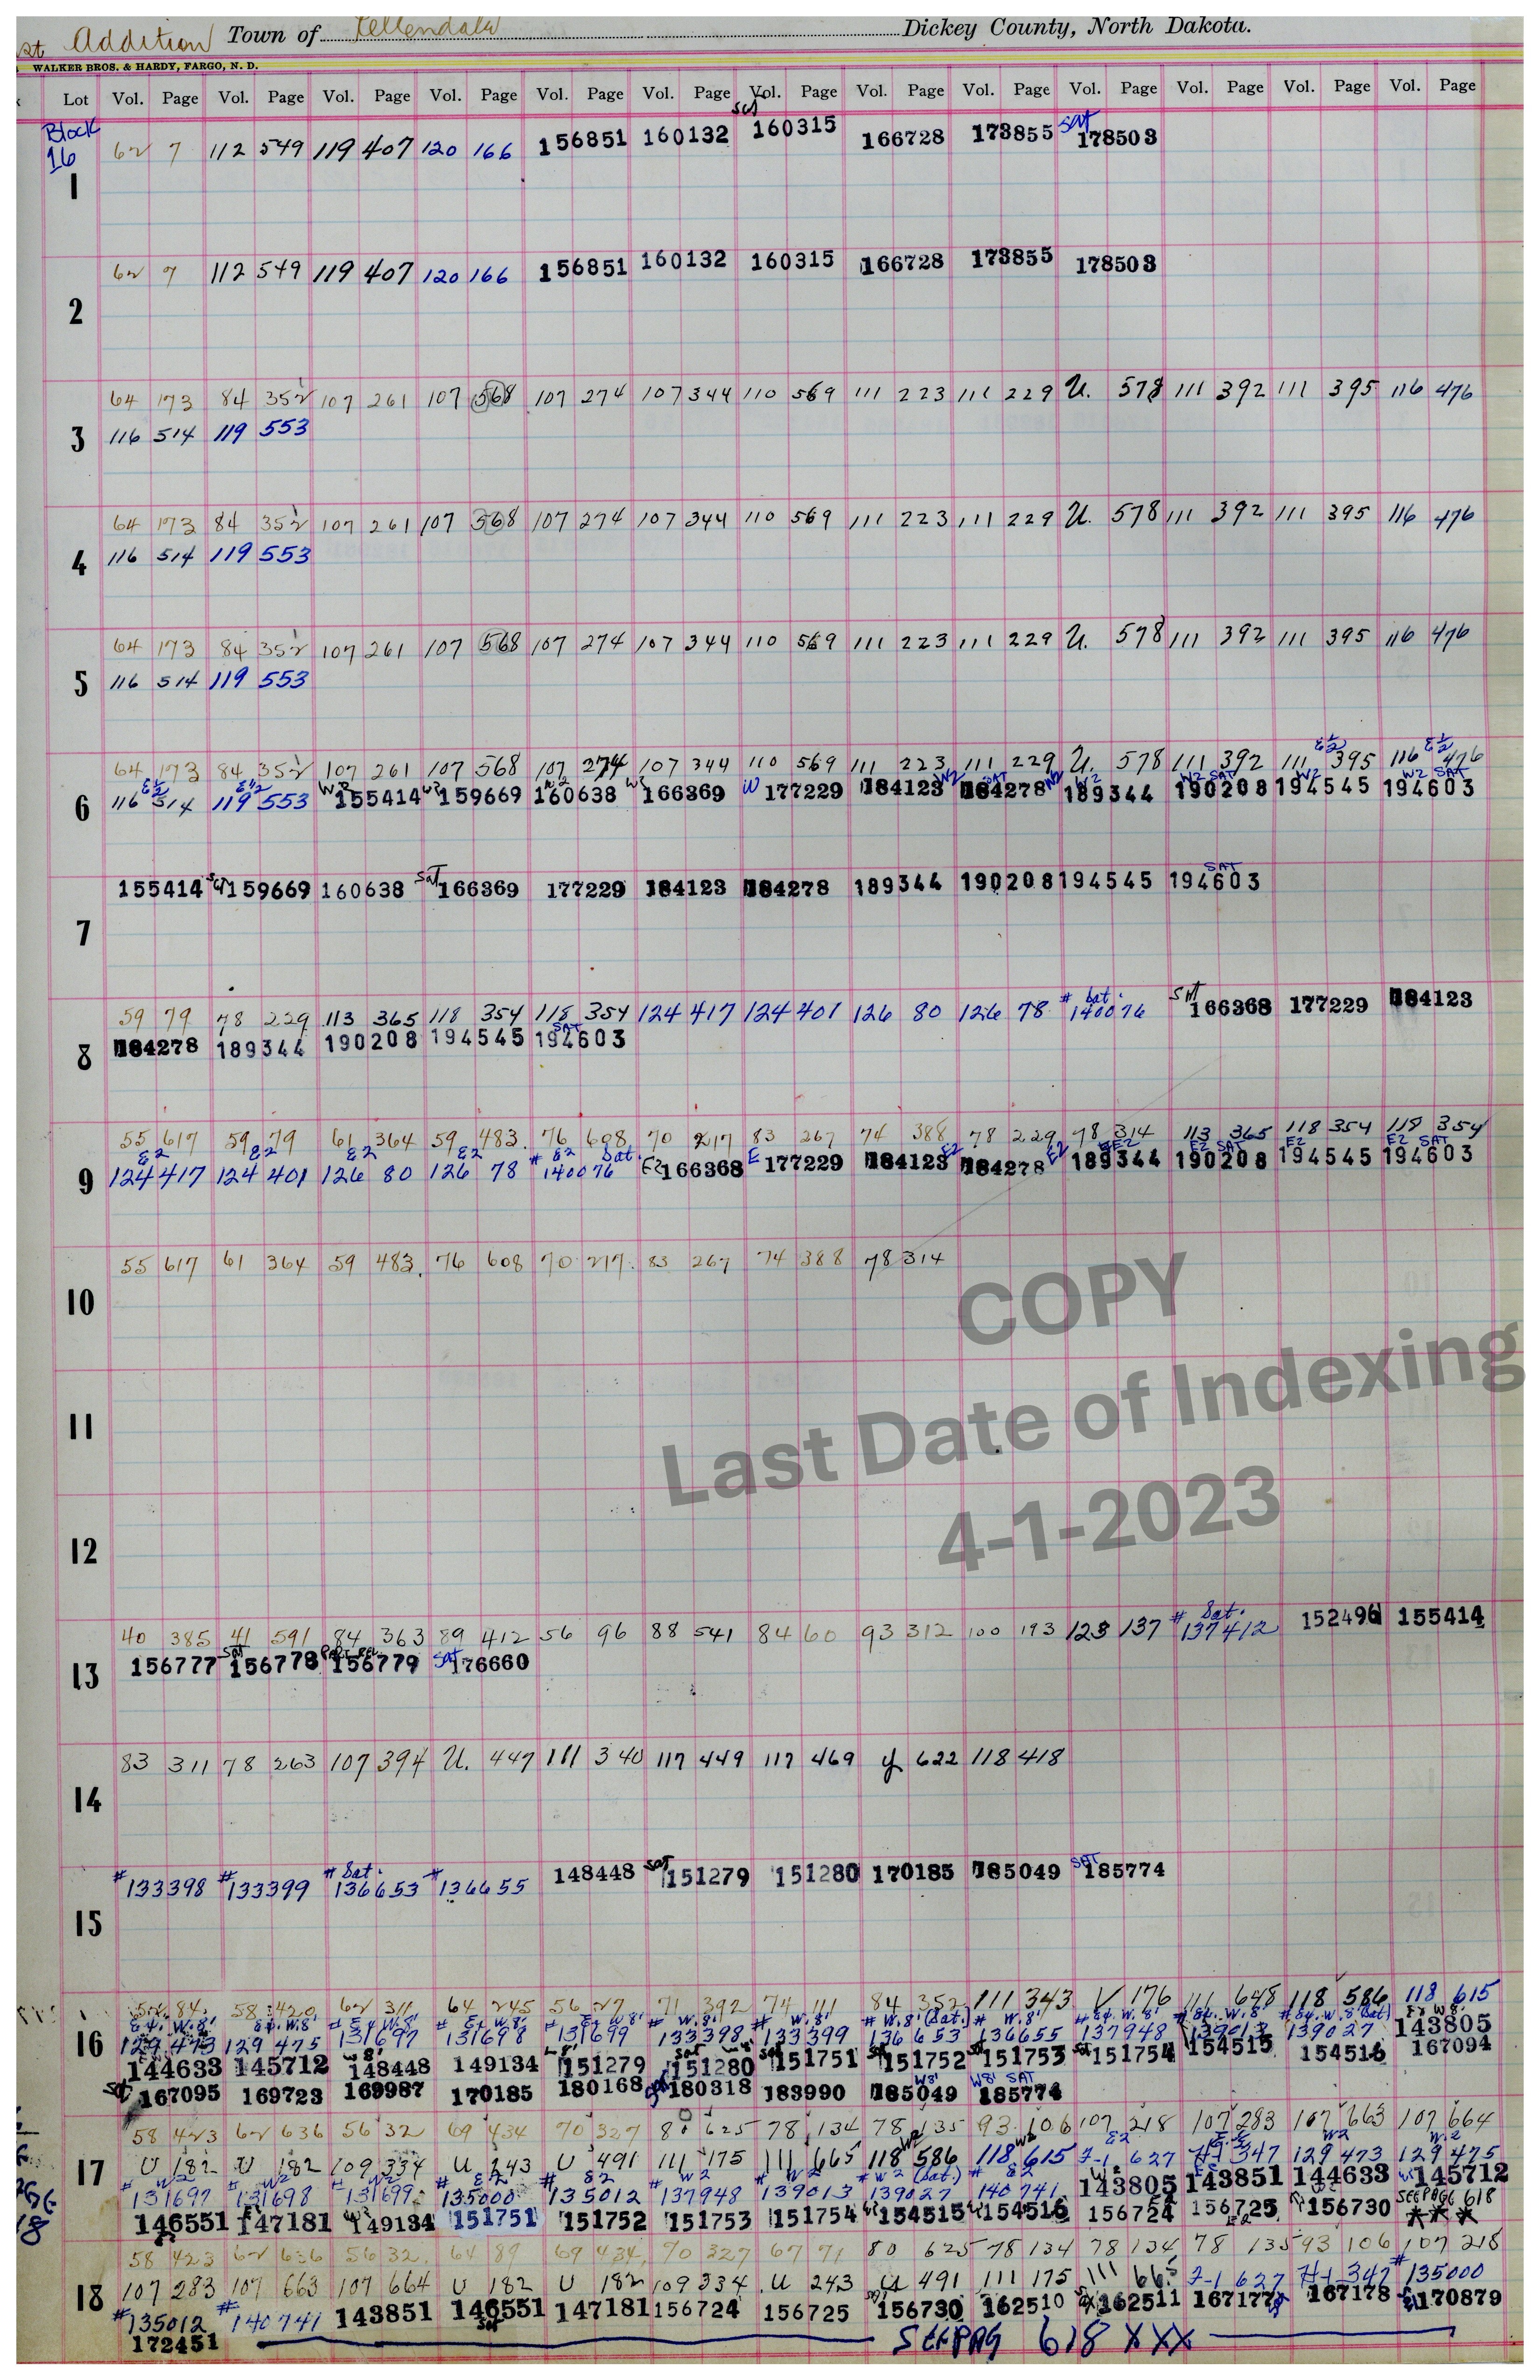 st Addition Town of Ellendale Dickey County, North Dakota.
WALKER BROS. & HARDY, FARGO, N. D.
Lot Vol. Page Vol. Page Vol. Page Vol. Page Vol. Page Vol. Page Vol. Page Vol. Page Vol. Page Vol. Page Vol. Page Vol. Page Vol. Page
Block 16
1 62 7 112 549 119 407 120 166 156851 160132 Sat 160315 166728 173855 Sat 178503
2 62 7 112 549 119 407 120 166 156851 160132 160315 166728 173855 178503
3 64 173 84 352 107 261 107 568 107 274 107 344 110 569 111 223 111 229 U. 578 111 392 111 395 116 476
116 514 119 553
4 64 173 84 352 107 261 107 568 107 274 107 344 110 569 111 223 111 229 U. 578 111 392 111 395 116 476
116 514 119 553
5 64 173 84 352 107 261 107 568 107 274 107 344 110 569 111 223 111 229 U. 578 111 392 111 395 116 476
116 514 119 553
6 64 173 84 352 107 261 107 568 107 274 107 344 110 569 111 223 111 229 U. 578 111 392 111 E½ 395 116 E½ 476
E½ 116 514 E½ 119 553 W2 155414 W2 159669 W2 160638 W2 166369 W 177229 184123 W2 184278 SAT W2 189344 W2 190208 W2 SAT 194545 W2 194603 W2 SAT
7 155414 Sat 159669 160638 Sat 166369 177229 184123 184278 189344 190208 194545 194603 SAT
8 59 79 78 229 113 365 118 354 118 354 124 417 124 401 126 80 126 78 # Sat. 140076 Sat 166368 177229 184123
184278 189344 190208 194545 194603 SAT
9 55 617 59 79 61 364 59 483. 76 608 70 217 83 267 74 388 78 229 78 314 113 365 118 354 118 354
E2 124 417 E2 124 401 E2 126 80 E2 126 78 # E2 Sat. 140076 E2 166368 E 177229 184123 E2 184278 E2 189344 E2 190208 E2 SAT 194545 E2 194603 E2 SAT
10 55 617 61 364 59 483. 76 608 70 217. 83 267 74 388 78 314
11
12
COPY
Last Date of Indexing
4-1-2023
13 40 385 41 591 84 363 89 412 56 96 88 541 84 60 93 312 100 193 123 137 # Sat. 137412 152496 155414
156777 Sat 156778 PART REL 156779 Sat 176660
14 83 311 78 263 107 394 U. 447 111 340 117 449 117 469 y 622 118 418
15 #133398 #133399 # Sat. 136653 #136655 148448 Sat 151279 151280 170185 185049 SAT 185774
16 52 84 58 420 62 311 64 245 56 27 71 392 74 111 84 352 111 343 V 176 111 648 118 586 118 615
129 473 129 475 131697 131698 131699 # W.8' 133398 # W.8' 133399 # W.8' (Sat.) 136653 # W.8' 136655 137948 139013 139027 143805
144633 145712 W 8' 148448 149134 W 8' 151279 Sat W 8' 151280 Sat 151751 Sat 151752 Sat 151753 Sat 151754 154515 154516 167094
Sat 167095 169723 169987 170185 180168 180318 183990 W8' 185049 W8' SAT 185774
17 58 423 62 636 56 32 69 434 70 327 80 625 78 134 78 135 93 106 107 218 107 283 107 663 107 664
U 182 U 182 109 334 U 243 U 491 111 175 111 665 W2 118 586 W2 118 615 E2 7-1 627 H-1 347 W2 129 473 W2 129 475
# W2 131697 # W2 131698 W2 131699 # E2 135000 # E2 135012 # W2 137948 # W2 139013 # W2 (Sat.) 139027 # E2 140741 W2 143805 E2 143851 144633 W2 145712
146551 147181 149134 151751 151752 151753 151754 154515 154516 156724 156725 156730 SEE PAGE 618 ***
18 58 423 62 636 56 32 64 89 69 434 70 327 67 71 80 625 78 134 78 134 78 135 93 106 107 218
107 283 107 663 107 664 U 182 U 182 109 334 U 243 U 491 111 175 111 665 7-1 627 H-1 347 #135000
#135012 #140741 143851 146551 147181 156724 156725 156730 162510 162511 167177 167178 170879
172451 SEE PAG 618 XXX